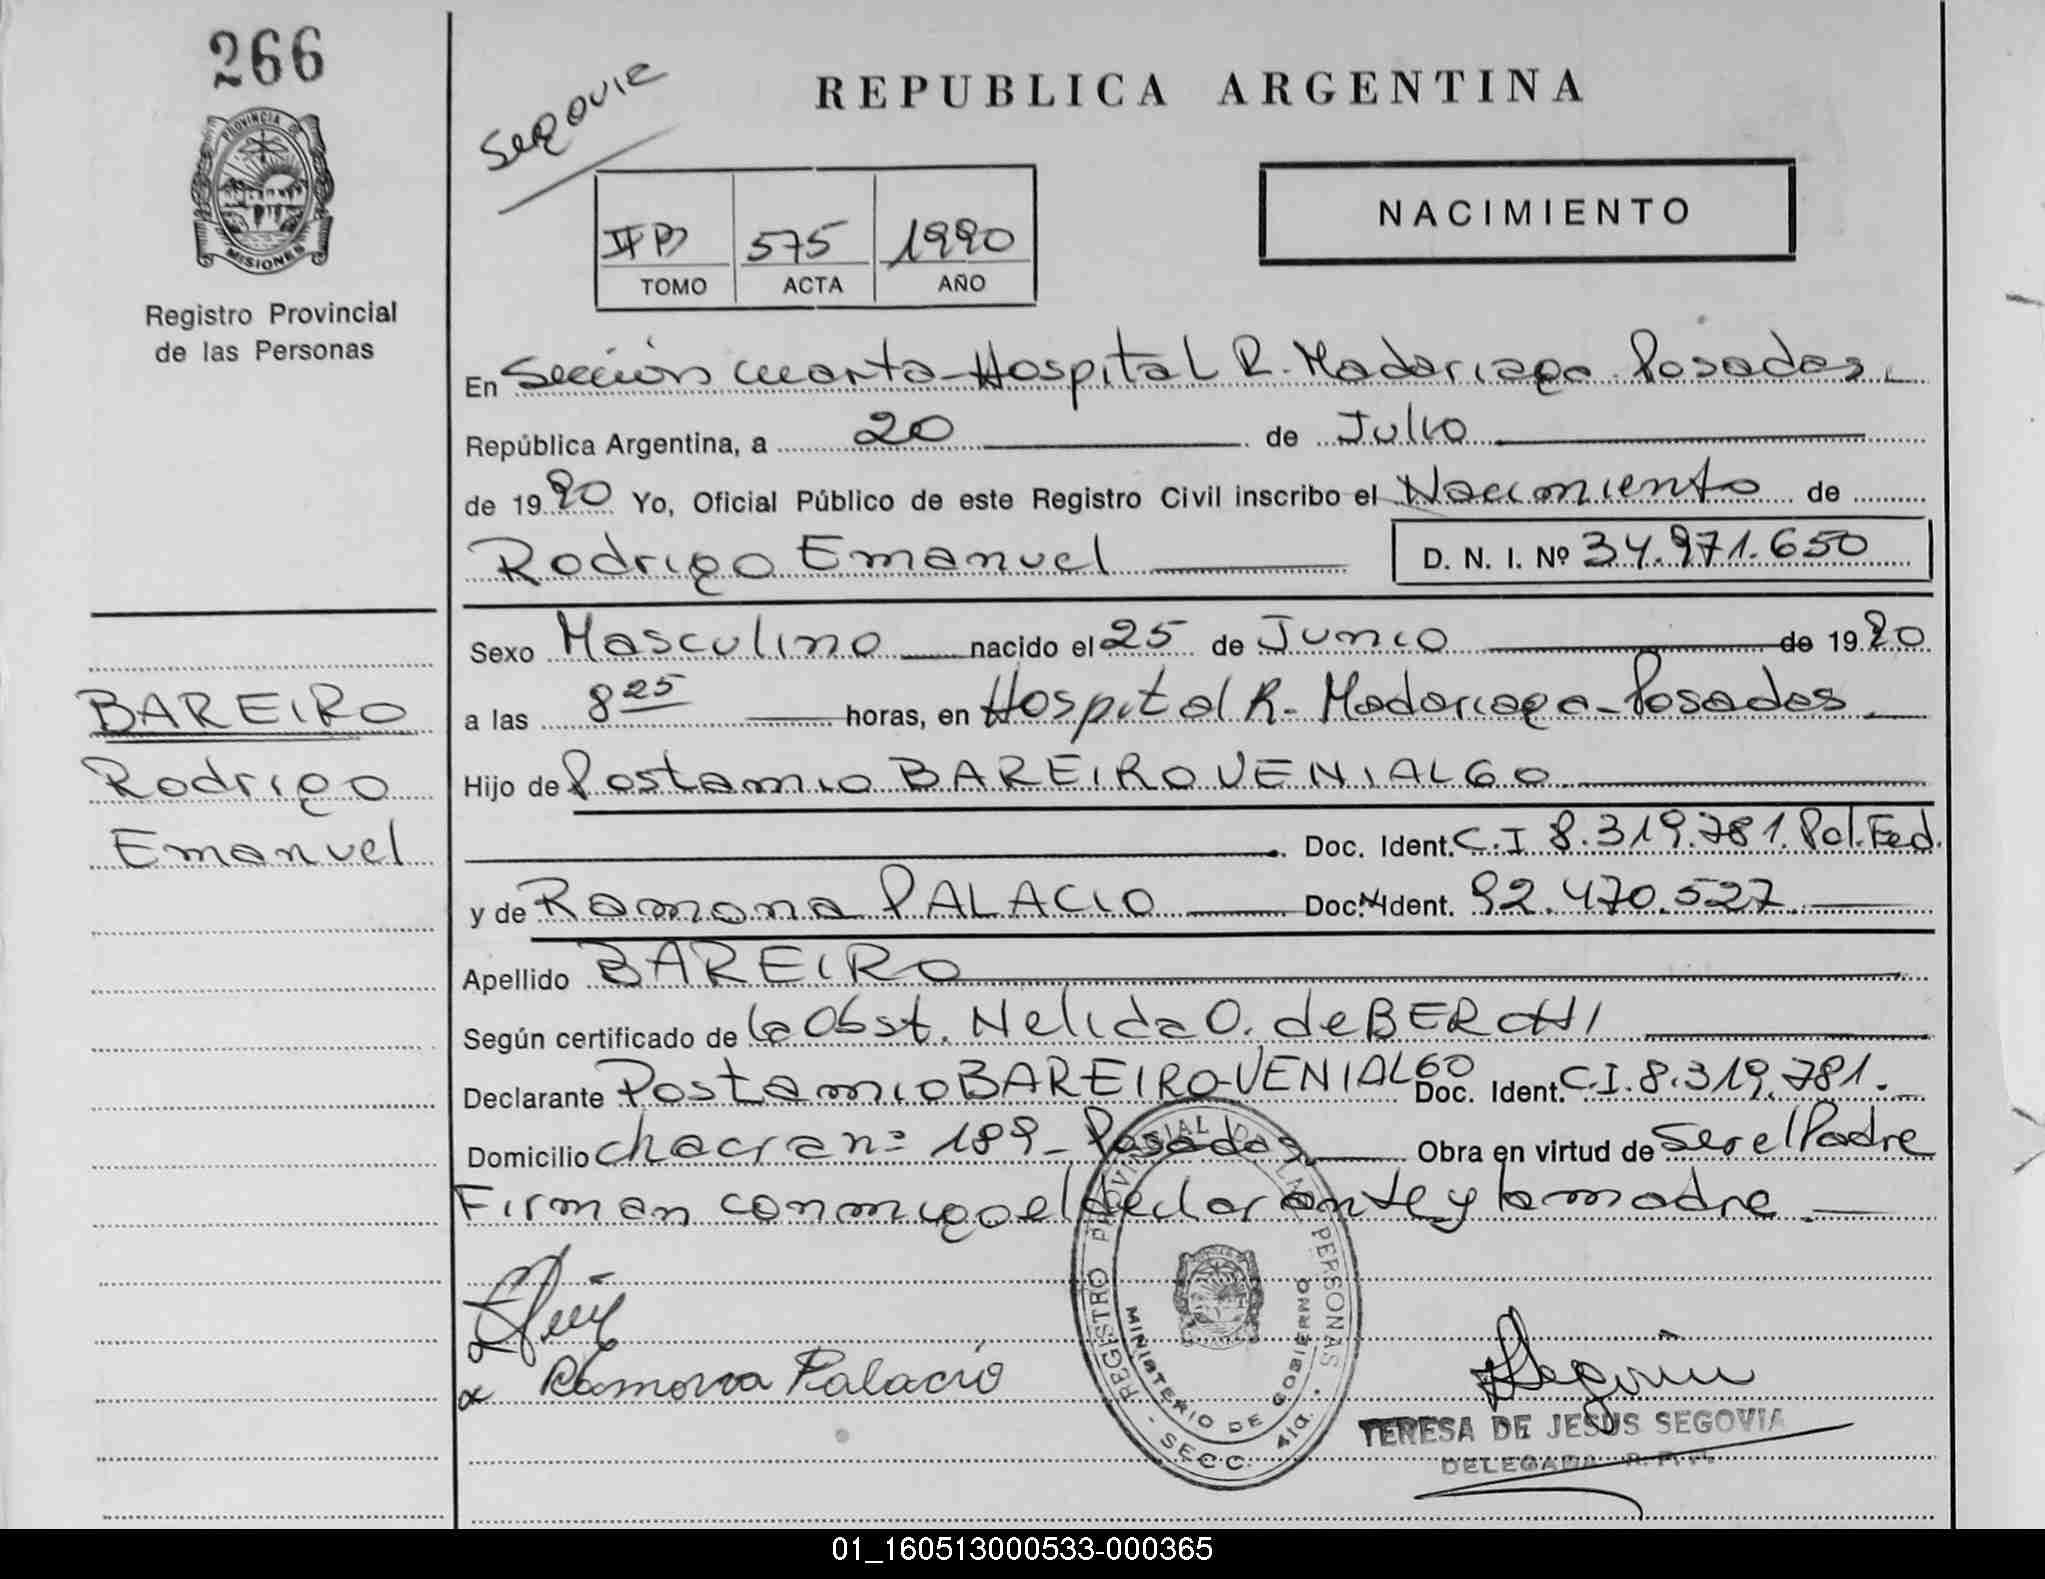 266
PROVINCIA DE
MISIONES
Registro Provincial
de las Personas
BAREIRO
Rodrigo
Emanuel
Segovia
REPUBLICA ARGENTINA
575 1990
TOMO ACTA AÑO
NACIMIENTO
En Sección cuarta Hospital R. Madariaga Posadas
República Argentina, a 20 de Julio
de 1990 Yo, Oficial Público de este Registro Civil inscribo el Nacimiento de
Rodrigo Emanuel D. N. I. Nº 34.971.650
Sexo Masculino nacido el 25 de Junio de 1990
a las 8 25 horas, en Hospital R. Madariaga - Posadas
Hijo de Postamio BAREIRO VENIALGO
Doc. Ident. C.I 8.319.781. Pol. Fed.
y de Ramona PALACIO Doc. N. Ident. 92.470.527
Apellido BAREIRO
Según certificado de la Obst. Nelida O. de BERCHI
Declarante Postamio BAREIRO-VENIALGO Doc. Ident. C.I. 8.319.781.
Domicilio chacra nº 189 - Posadas Obra en virtud de ser el Padre
Firman conmigo el declarante y la madre.
Ramona Palacio
REGISTRO PROVINCIAL DE LAS PERSONAS
MINISTERIO DE GOBIERNO
- SECC. 4ta. -
TERESA DE JESUS SEGOVIA
DELEGADA R. P. P.
01_160513000533-000365